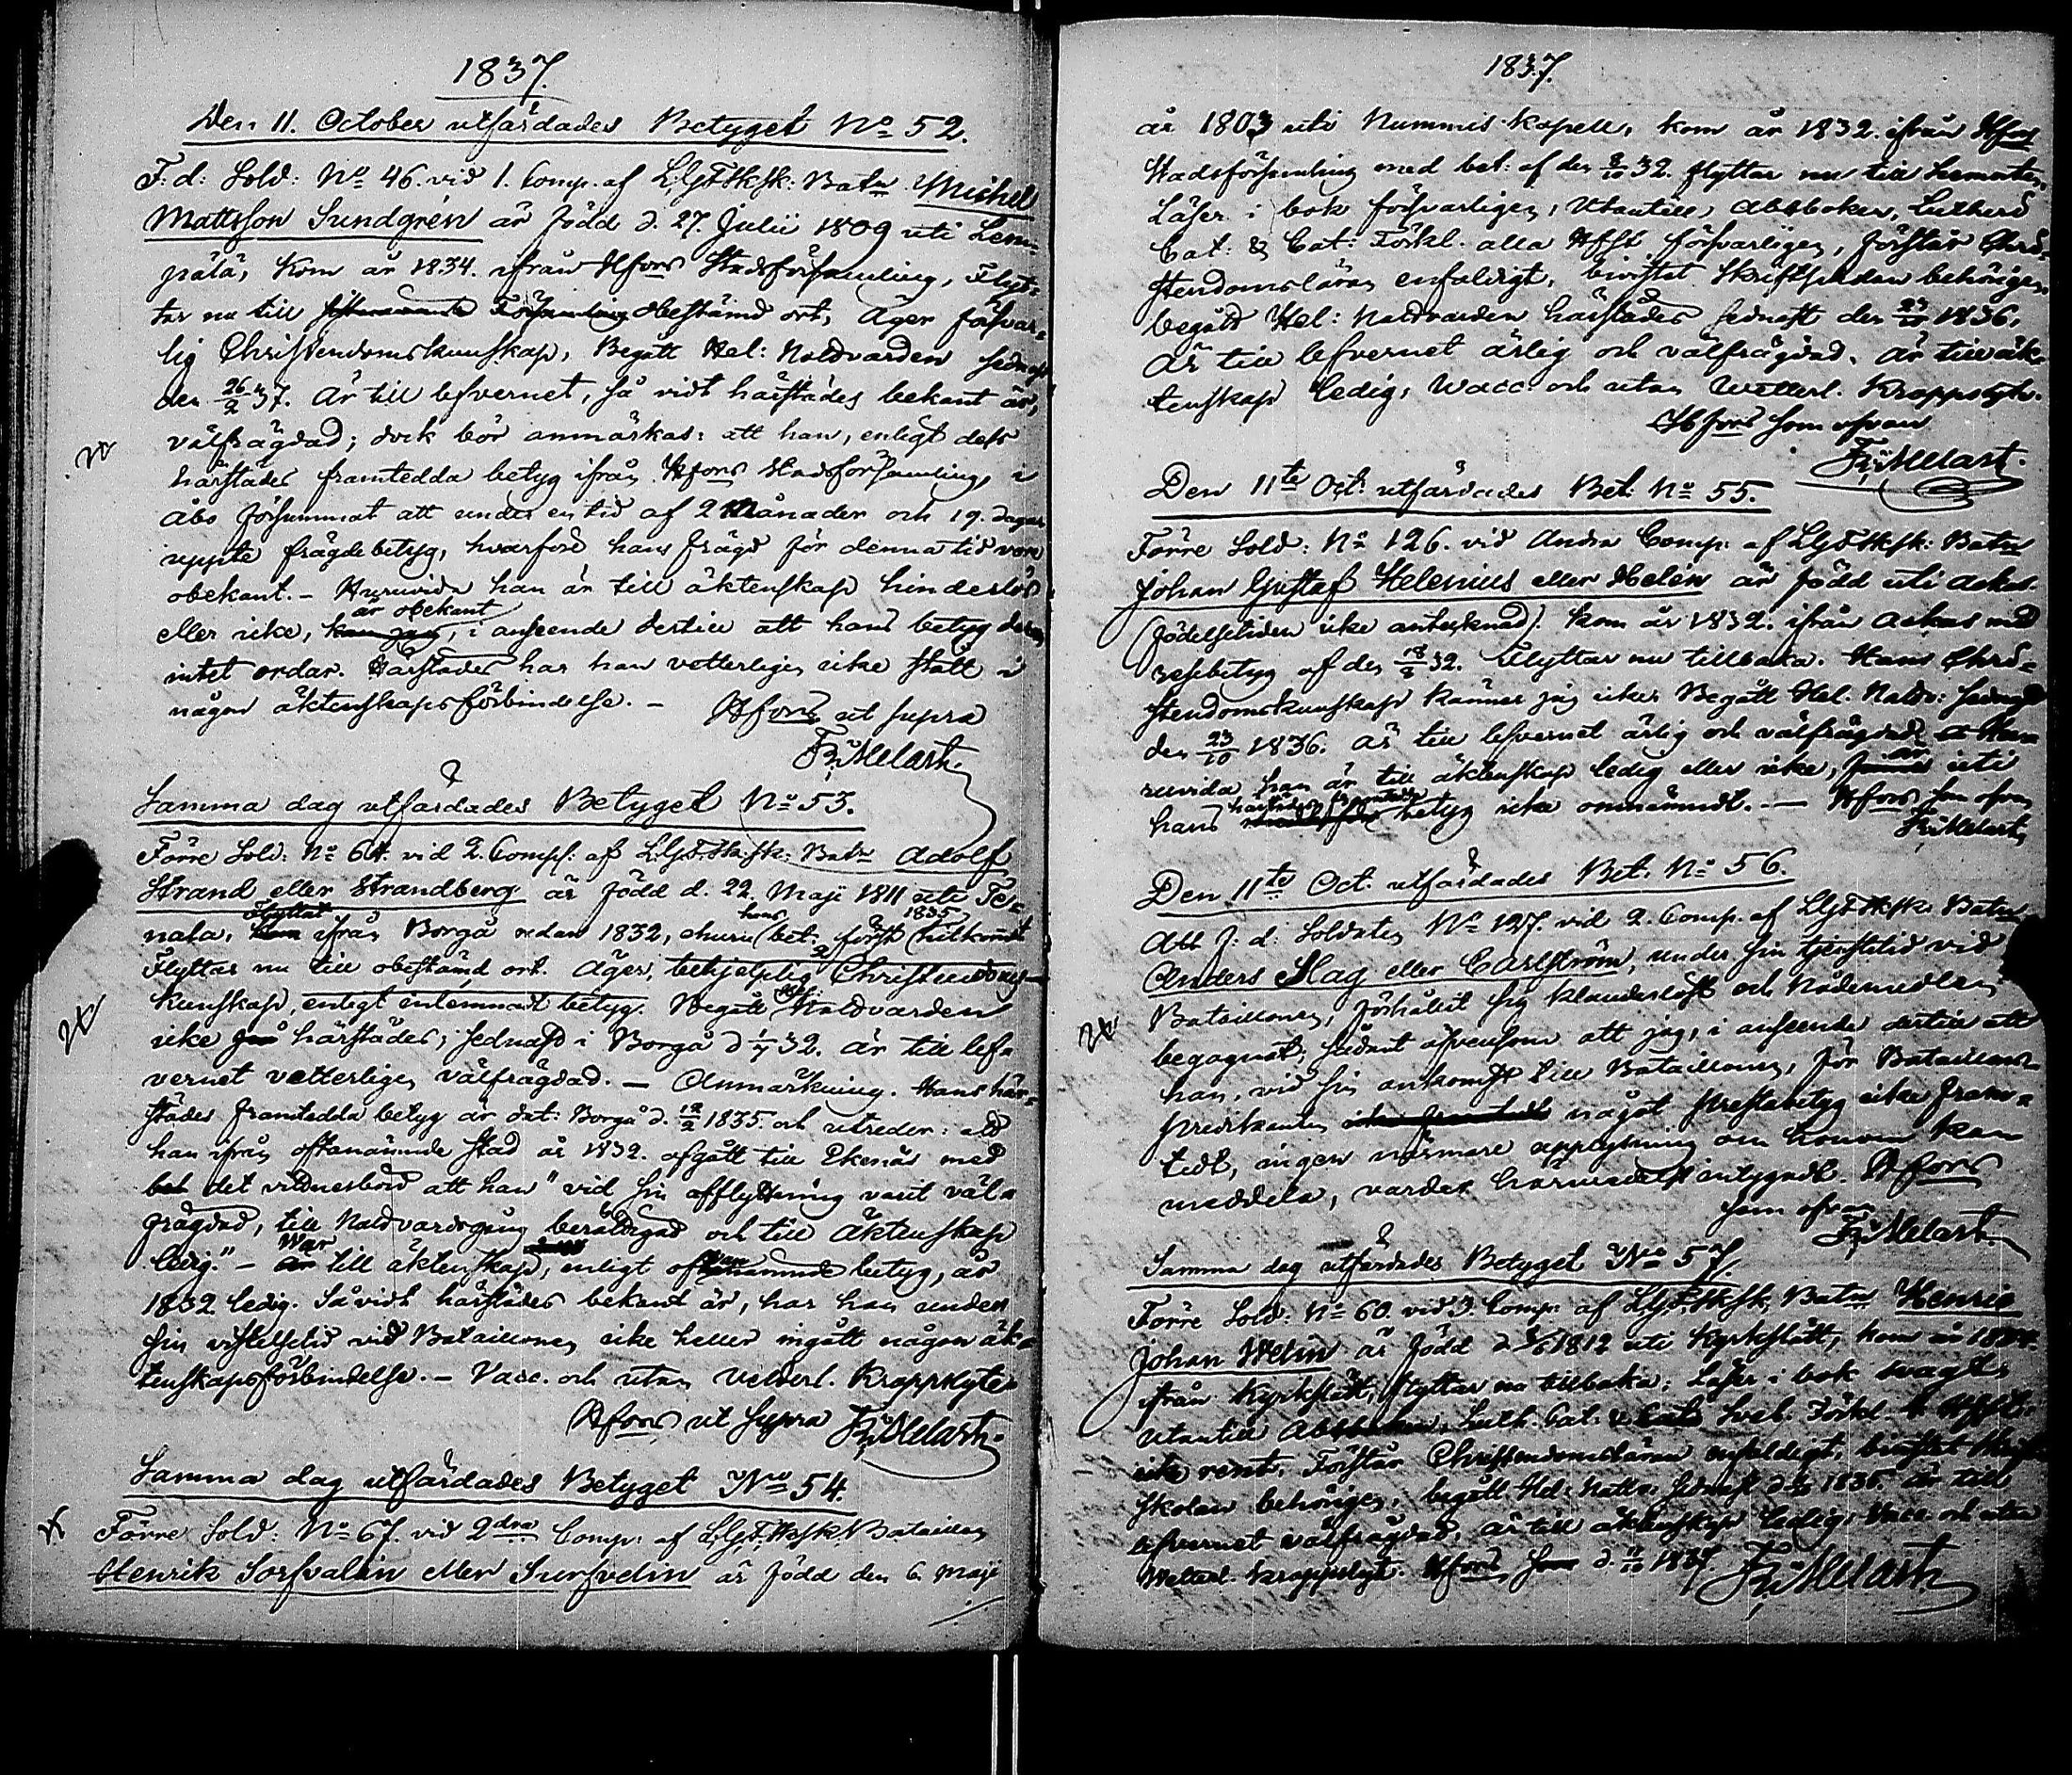 1837.
Den 11. October utfärdades Betyget No 52.
F: d: Sold: No 46. vid 1. Comp. af L:G:F:Sksk: Batn Michel
Mattsson Sundgrén är född d. 27. Julii 1809 uti Lem-
pälä, kom år 1834. ifrån Hfors Stadsförsamling, Flyt-
tar nu till Församling obestämd ort, Äger försvar-
lig Christendomskunskap, Begått Hel: Nattvarden sednast
den 26/2 37. Är till lefvernet, så vidt härstädes bekant är,
välfrägdad; dock bör anmärkas: att han, enligt dess
härstädes framtedda betyg ifrån Hfors Stadsförsamling, i
Åbo försummat att under en tid af 2 Månader och 19. dagar
uppte frägdebetyg, hvarföre hans frägd för denna tid vore
obekant. - Huruvida han är till äktenskap hinderlös
är obekant
eller icke, kan jag, i anseende dertill att hans betyg derom
intet ordar. Härstädes har han vetterligen icke stått i
någon äktenskapsförbindelse. -
Hfors ut supra
Fr: Melart.
Samma dag utfärdades Betyget No 53.
Förre Sold: No 64. vid 2. Comp: af L:G:F:Sk:sk: Batn Adolf
Strand eller Strandberg är född d. 22. Maji 1811 uti Te-
Flyttat hans 1835
nala, kom ifrån Borgå redan 1832, ehuru bet. först tillkommit
Flyttar nu till obestämd ort. Äger, behjelplig Christendoms-
Hel.
kunskap, enligt inlemnadt betyg. Begått Nattvarden
icke härstädes; sednast i Borgå d 1/7 32. är till lef-
vernet vetterligen välfrägdad. - Anmärkning. Hans här-
städes framtedda betyg är dat: Borgå d. 12/2 1835. och utreder: att
han ifrån oftanämnde stad år 1832. afgått till Ekenäs med
bet det vitnesbörd att han "vid sin afflyttning varit väl-
frägdad, till Nattvardsgång berättigad och till äktenskap
War
ledig." - är till äktenskap, enligt betyg, år
1832 ledig. Så vidt härstädes bekant är, har han under
sin vistelsetid vid Bataillonen icke heller ingått någon äk-
tenskapsförbindelse. - Vacc. och utan vetterl. Kroppslyte
Hfors ut supra Fr: Melart.
Samma dag utfärdades Betyget No 54.
Förre Sold: No 67. vid 2dra Comp: af L:G:F:Sk:sk: Bataillon
Henrik Sorfvalin eller Surfvelin är född den 6. Maji
1837.
år 1803 uti Nummis kapell, kom år 1832. ifrån Hfors
Stadsförsamling med bet: af den 8/10 32. flyttar nu till
Läser i bok försvarligen, Utantill, Abcboken, Lutheri
Cat: & Cat: Förkl. alla Hfst försvarligen, förstår Chri-
stendomsläran enfaldigt, bivistat Skriftskolan behörigen,
begått Hel: Nattvarden härstädes sednast den 23/10 1836,
är till lefvernet ärlig och välfrägdad, är till äk-
tenskap ledig, Vacc. och utan Vetterl. Kroppslyte.
Hfors som ofvan
Fr: Melart.
Den 11te Oct: utfärdades Bet: No 55.
Förre Sold: No 126. vid Andra Comp: af L:G:F:Sk:sk: Batn
Johan Gustaf Helenius eller Helén är född uti Askas
(födelsetiden icke antecknad). kom år 1832. ifrån Askas med
resebetyg af den 32. Flyttar nu tillbaka. Hans Chri-
stendomskunskap känner jag icke. Begått Hel. Nattv: sednast
den 23/10 1836. är till lefvernet ärlig och välfrägdad. Hu-
ruvida han är till äktenskap ledig eller icke, är uti
härstädes framtedde
hans betyg icke omnämndt. - Hfors som ofvan
Fr: Melart.
Den 11te Oct. utfärdades Bet. No 56.
Att f: d: Soldaten No 127. vid 2. Comp. af L:G:F:Sk:sk: Batn
Anders Slag eller Carlström, under sin tjenstetid vid
Bataillonen, förhållit sig klanderlöst och Nådemedlen
begagnat, sådant äfvensom att jag, i anseende dertill att
han, vid sin ankomst till Bataillonen, för Bataillons-
predikanten icke framtedt något prestbetyg icke fram-
tedt, ingen närmare upplysning om honom kan
meddela, varder härmedelst intygadt. Hfors
som ofvan
Fr: Melart.
Samma dag utfärdades Betyget No 57.
Förre Sold: No 60. vid 3. Comp: af L:G:F:Sk:sk: Batn Henric
Johan Welin är född d 1812 uti Kyrkslätt, kom år
ifrån Kyrkslätt, flyttar nu tillbaka: Läser i bok svagt,
utantill Abcboken, Luth. Cat: Sveb: Förkl.
icke rent. Förstår Christendomsläran enfaldigt, bivistat Skrift-
skolan behörigen, begått Hel: Nattv: sednast d. 1835. är till
lefvernet välfrägdad, är till äktenskap ledig, Vacc. och utan
Vetterl. kroppslyte. Hfors d. 11/10 1837. Fr: Melart